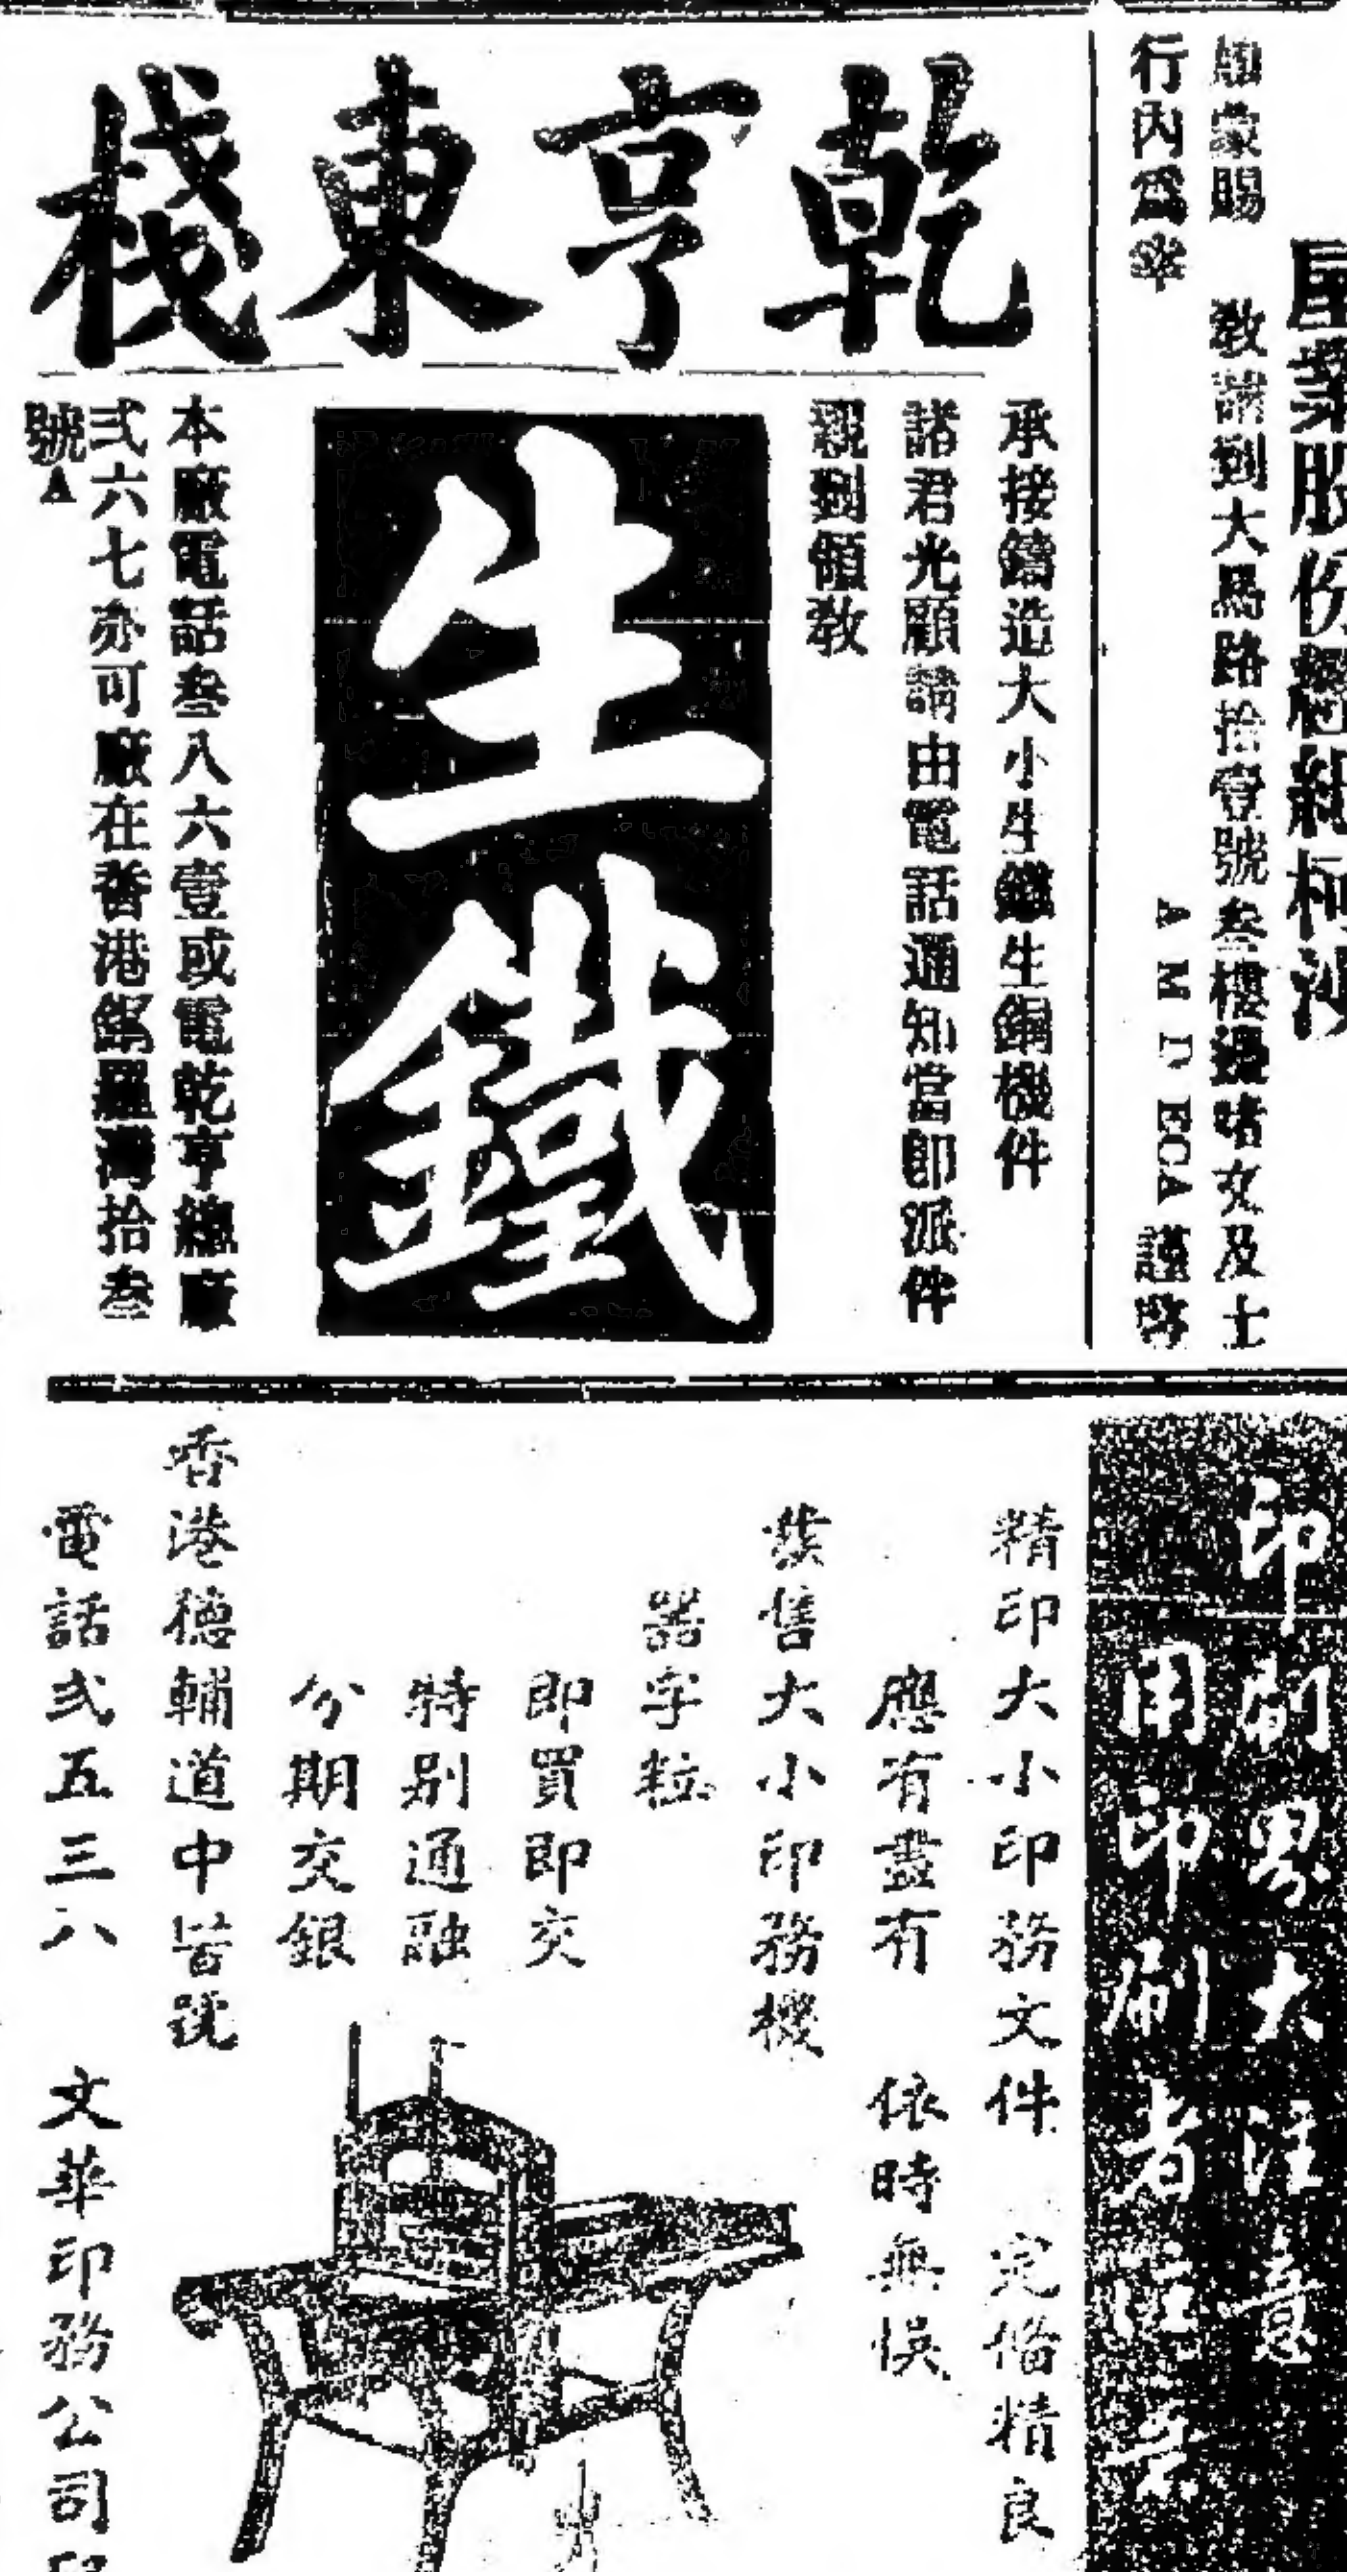 屋業股份經紀柯
蒙賜 敎請到大馬路拾壹號叁樓 及士
行內爲幸
A M D ECA 謹啓
乾亨東棧
承接鑄造大小生鐵生銅機件
諸君光顧請由電話通知當卽派伴
親到領敎
生鐵
本廠電話叁八六壹或電乾亨總廠
弍六七亦可廠在香港銅羅灣拾叁
號▲
印刷界大注意
用印刷者注意
精印大小印務文件 定價精良
應有盡有 依時無悞
發售大小印務機
器字粒
即買即交
特別通融
分期交銀
香港德輔道中 號
電話弍五三八 文華印務公司